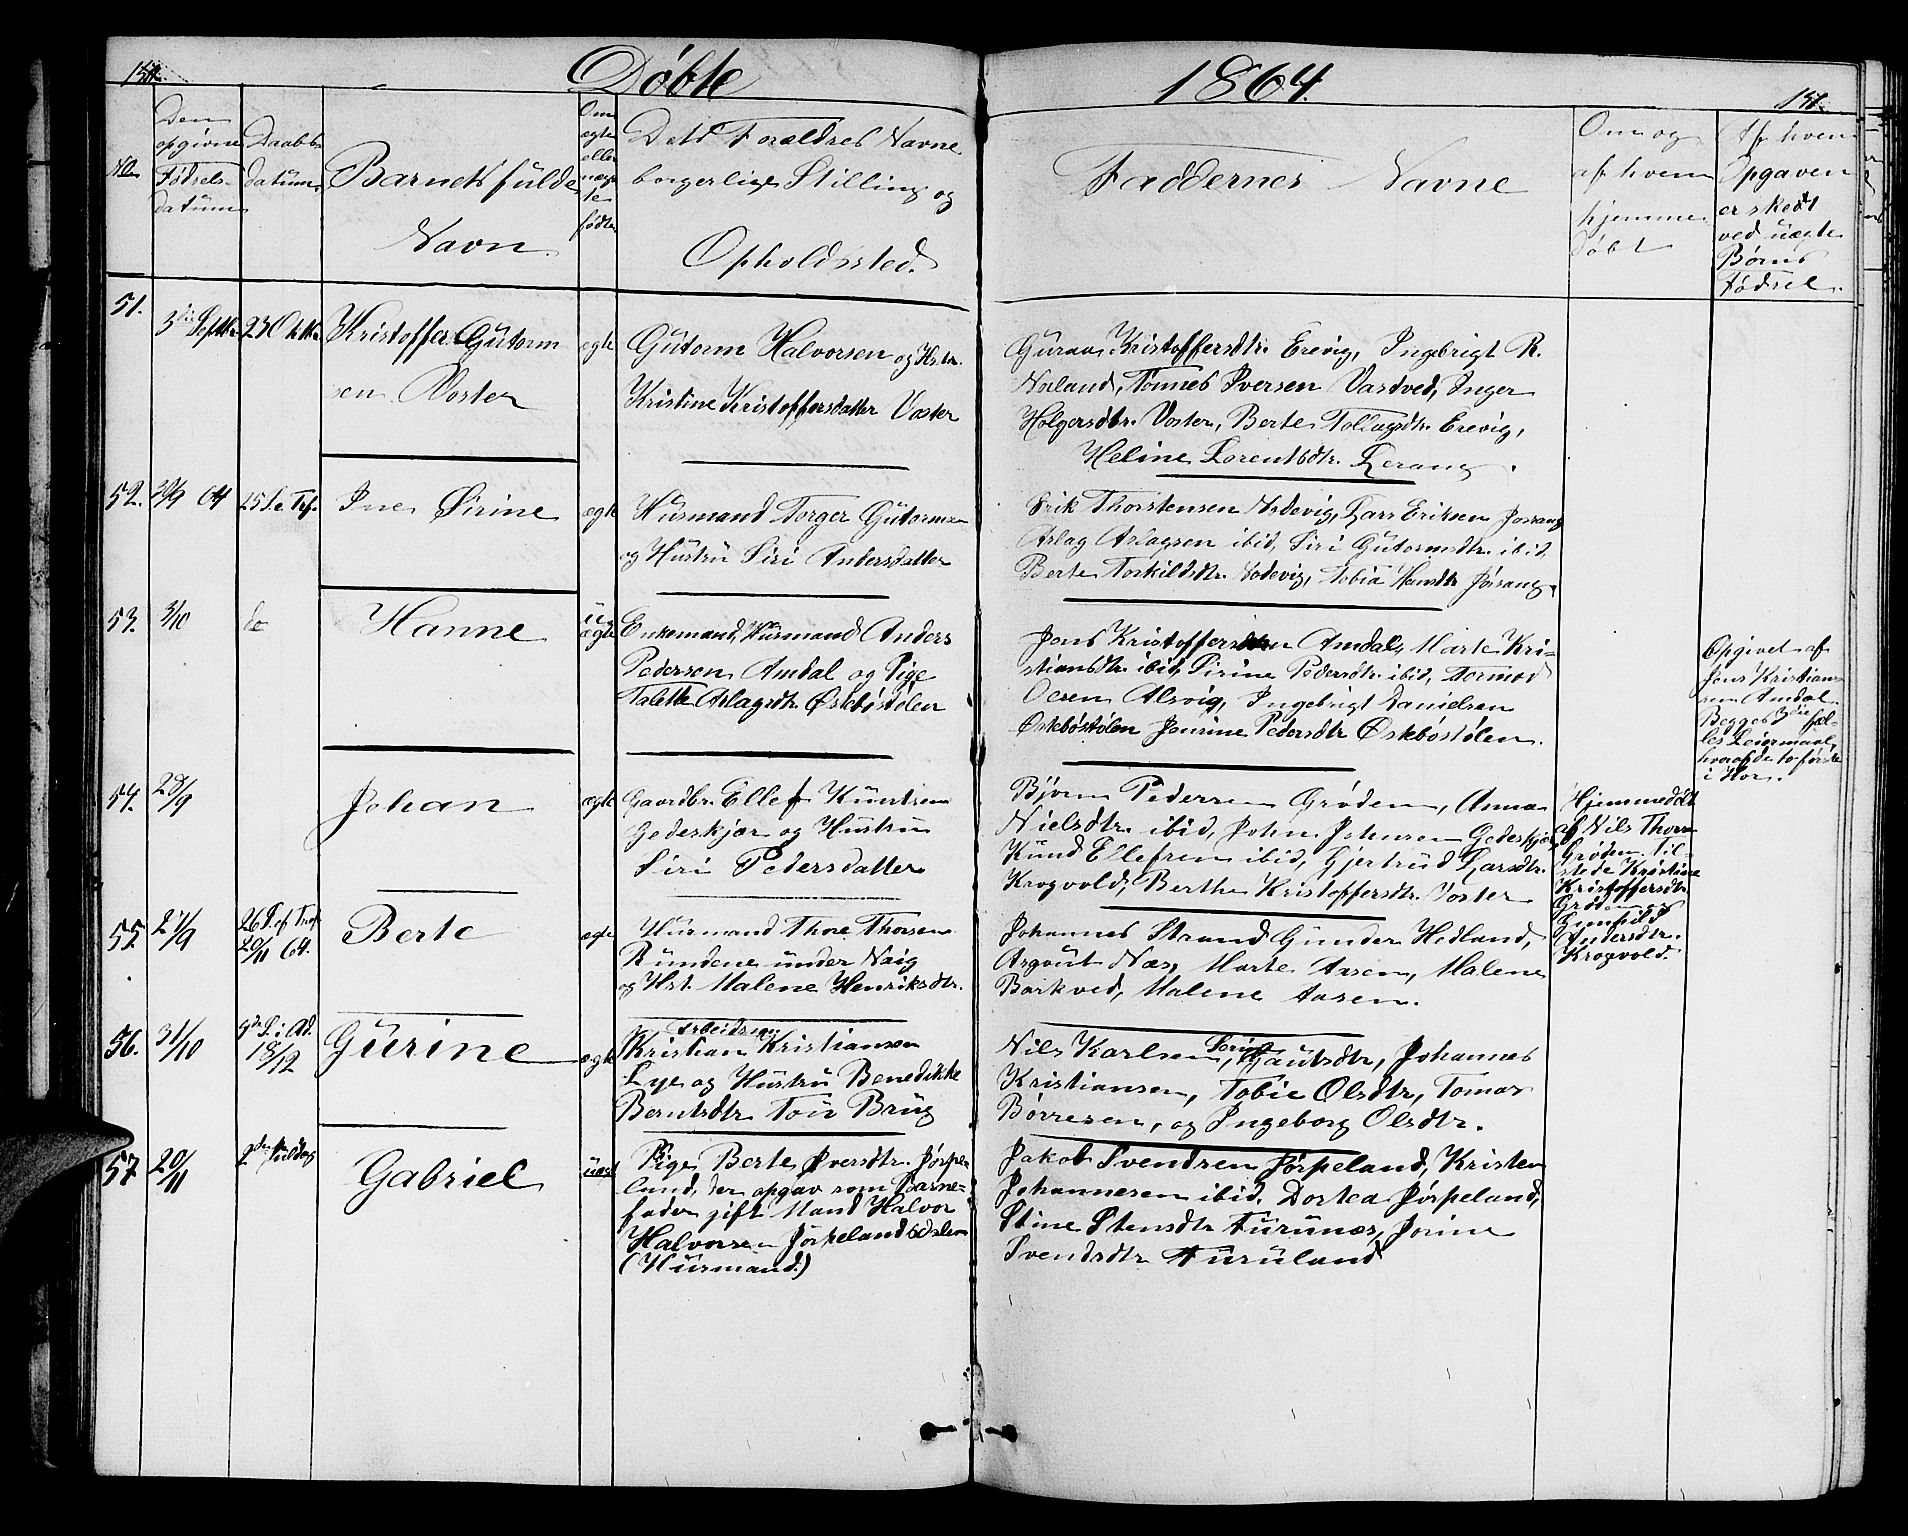 Døbte
1864.
No
Den opgivne Fødsels- datum
Daabs- datum
Barnets fulde Navn.
Om ægte eller uægte fødte
Dets Forældres Navne borgerlige Stilling og Opholdssted.
Faddernes Navne
Om og af hvem hjemme- døbt
Af hvem Opgaven er skedt ved uægte Børns Fødsel.
51.
3die Septbr
23 Oktbr
Kristoffer Gutorm
sen Voster
ægte
Gutorm Halvorsen og Hstr.
Kristine Kristoffersdatter Voster
Kristoffersdtr. Erevig, Ingebrigt R.
Nøland, Tønnes Iversen Vastved, Inger
Holgersdtr. Voster, Berte Tollagsdtr. Erevig,
Heline Lorentsdtr.
52.
04
25 S. e. Tref.
Ine Sirine
ægte
Husmand Torger Gutormsen
og Hustru Siri Andersdatter
Erik Thorstensen Lars Eriksen Jøsang
Aslag Aslagsen ibid, Siri Gutormsdtr. ibid,
Berte Torkildsdtr. Tobia Jøsang.
53.
3/10
do
Hanne
uægte
Enkemand, Husmand Anders
Pedersen Amdal og Pige
Talette Aslagsdtr. Øskebøstølen
Jens Kristoffersen Amdal, Marte Kri-
stiansdtr. ibid, Sirine Pedersdtr. ibid, Tormod
Oesen Alsvig, Ingebrigt Danielsen
Øskebøstølen Jensine Pedersdtr Øskebøstølen.
Opgivet af
Jens Kristian-
sen Amdal.
Begges 3die fæl-
les Leiermaal,
hvoraf de to første
i Hor.
54.
28/9
Johan
ægte
Gaardbr. Ellef Knutsen
Gedeskjær og Hustru
Siri Pedersdatter
Bjørn Pedersen Grøden, Anna
Nielsdtr. ibid, John Johnsen Gedeskjær
Knud Ellefsen ibid, Gjertrud Larsdtr.
Krogvold, Berthe Kristoffersdtr. Voster
Hjemmedøbt
af Nils Thorsen
Grøden. Til-
stede Kristine
Kristoffersdtr.
Grøden og
Gunhild
Andersdtr.
Krogvold.
55
27/9
26 S. ef Tref.
20/11 64.
Berte
ægte
Husmand Thore Thorsen
Rundene under Naig
og Hst. Malene Henriksdtr.
Johannes Strand Gunder Hedland,
Asgout Næs, Marte Aasen, Malene
Barkved, Malene Aasen.
56.
31/10
4de S. i Ad.
18/12
Gurine
ægte
Arbeidsm
Kristian Kristiansen
Lye og Hustru Benedikke
Berntsdtr Tou Brug
Nils Karlsen, Serine Gautsdtr, Johannes
Kristiansen, Tobie Olsdtr, Tomas
Børresen, og Ingeborg Olsdtr.
57
20/11
2den Juledag
Gabriel
uægte
Pige Berte Iversdtr. Jørpe
land, der opgav som Barne-
fader gift Mand Halvor
Halvorsen Jørpelandsødslen
(Husmand.)
Jakob Svendsen Jørpeland, Kristen
Johannesen ibid. Dortea Jørpeland,
Stine Stensdtr Furunæs, Jorine
Svendsdtr Furuland